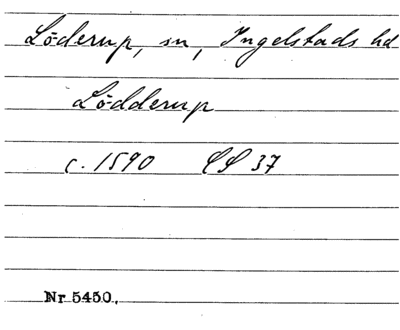 Löderup, sn, Ingelstads hd
Lödderup
c. 1590 LS 37
Nr 5450.